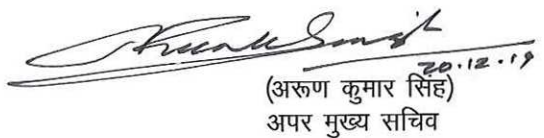 20.12.19
(अरूण कुमार सिंह)
अपर मुख्य सचिव